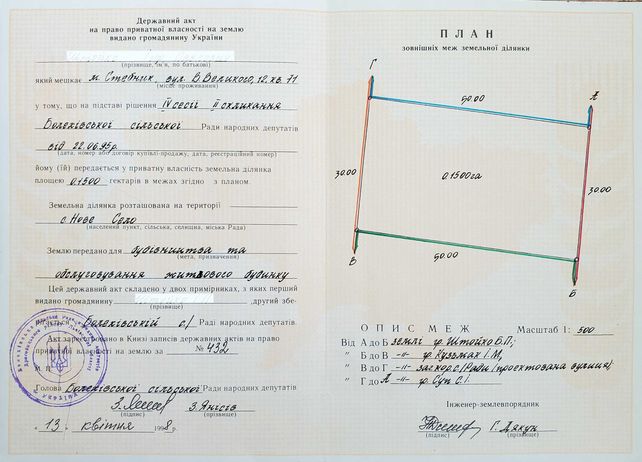 Державний акт
на право приватної власності на землю
видано громадянину України
(прізвище, ім'я, по батькові)
який мешкає м. Стебник, вул. В.Великого, 12, кв. 71
(місце проживання)
у тому, що на підставі рішення IV сесії II скликання
Болехівської сільської Ради народних депутатів
від 22.06.95р.
(дата, номер або договір купівлі-продажу, дата, реєстраційний номер)
йому (їй) передається у приватну власність земельна ділянка
площею 0,1500 гектарів в межах згідно з планом.
Земельна ділянка розташована на території
с. Нове Село
(населений пункт, сільська, селищна, міська Рада)
Землю передано для будівництва та
(мета, призначення)
обслуговування житлового будинку
Цей державний акт складено у двох примірниках, з яких перший
видано громадянину ,другий збе-
(прізвище)
рігається Болехівській с/ Раді народних депутатів.
Акт зареєстровано в Книзі записів державних актів на право
приватної власності на землю за № 432
М. П.
Голова Болехівської сільської Ради народних депутатів
(підпис) (прізвище)
" 13 " квітня 1998р.
ПЛАН
зовнішніх меж земельної ділянки
Г
50.00
А
30.00
0.1500га
30.00
В
50.00
Б
ОПИС МЕЖ Масштаб 1: 500
Від А до Б землі гр. Штойко Б.П.;
" Б до В -"- гр. Кузьмак І.М,
" В до Г -"- заг.кор. с/Ради (проектована вулиця);
" Г до А -"- гр. Суп С.І.
Інженер-землевпорядник
Г. Дякун
(підпис) (прізвище)